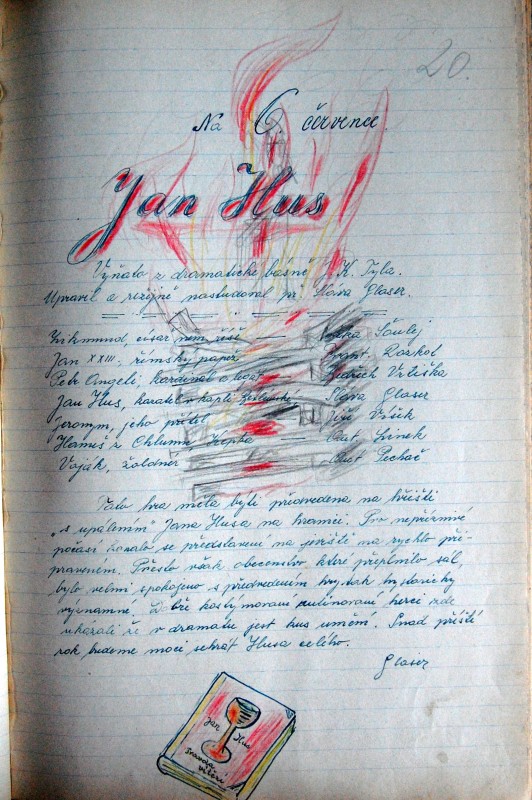 20.
Na 6. července
Jan Hus
Vyňato z dramatické básně J. K. Tyla.
Upravil a režijně nastudoval př. Sláva Glaser.
Zikmund, císař něm. říše Šoulej
Jan XXIII., římský papež Frant. Rozkol
Petr Angeli, kardinál a legát Vrliška
Jan Hus, kazatel v kapli Betlemské Sláva Glaser
Jeroným, jeho přítel Jiří Vršík
z Chlumu, Linek
Voják, žoldner Pechač
Tato hra měla býti předvedena na hřišti
„s upálením" Jana Husa na hranici. Pro nepříznivé
počasí konalo se představení na jevišti na rychlo při-
praveném. Přesto však obecenstvo, které přeplnilo sál,
bylo velmi spokojeno s předvedením hry tak
významné. Dobře kostymovaní herci zde
ukázali že v dramatu jest kus umění. Snad příští
rok budeme moci sehrát Husa celého.
Glaser
Jan Hus
pravda
vítězí